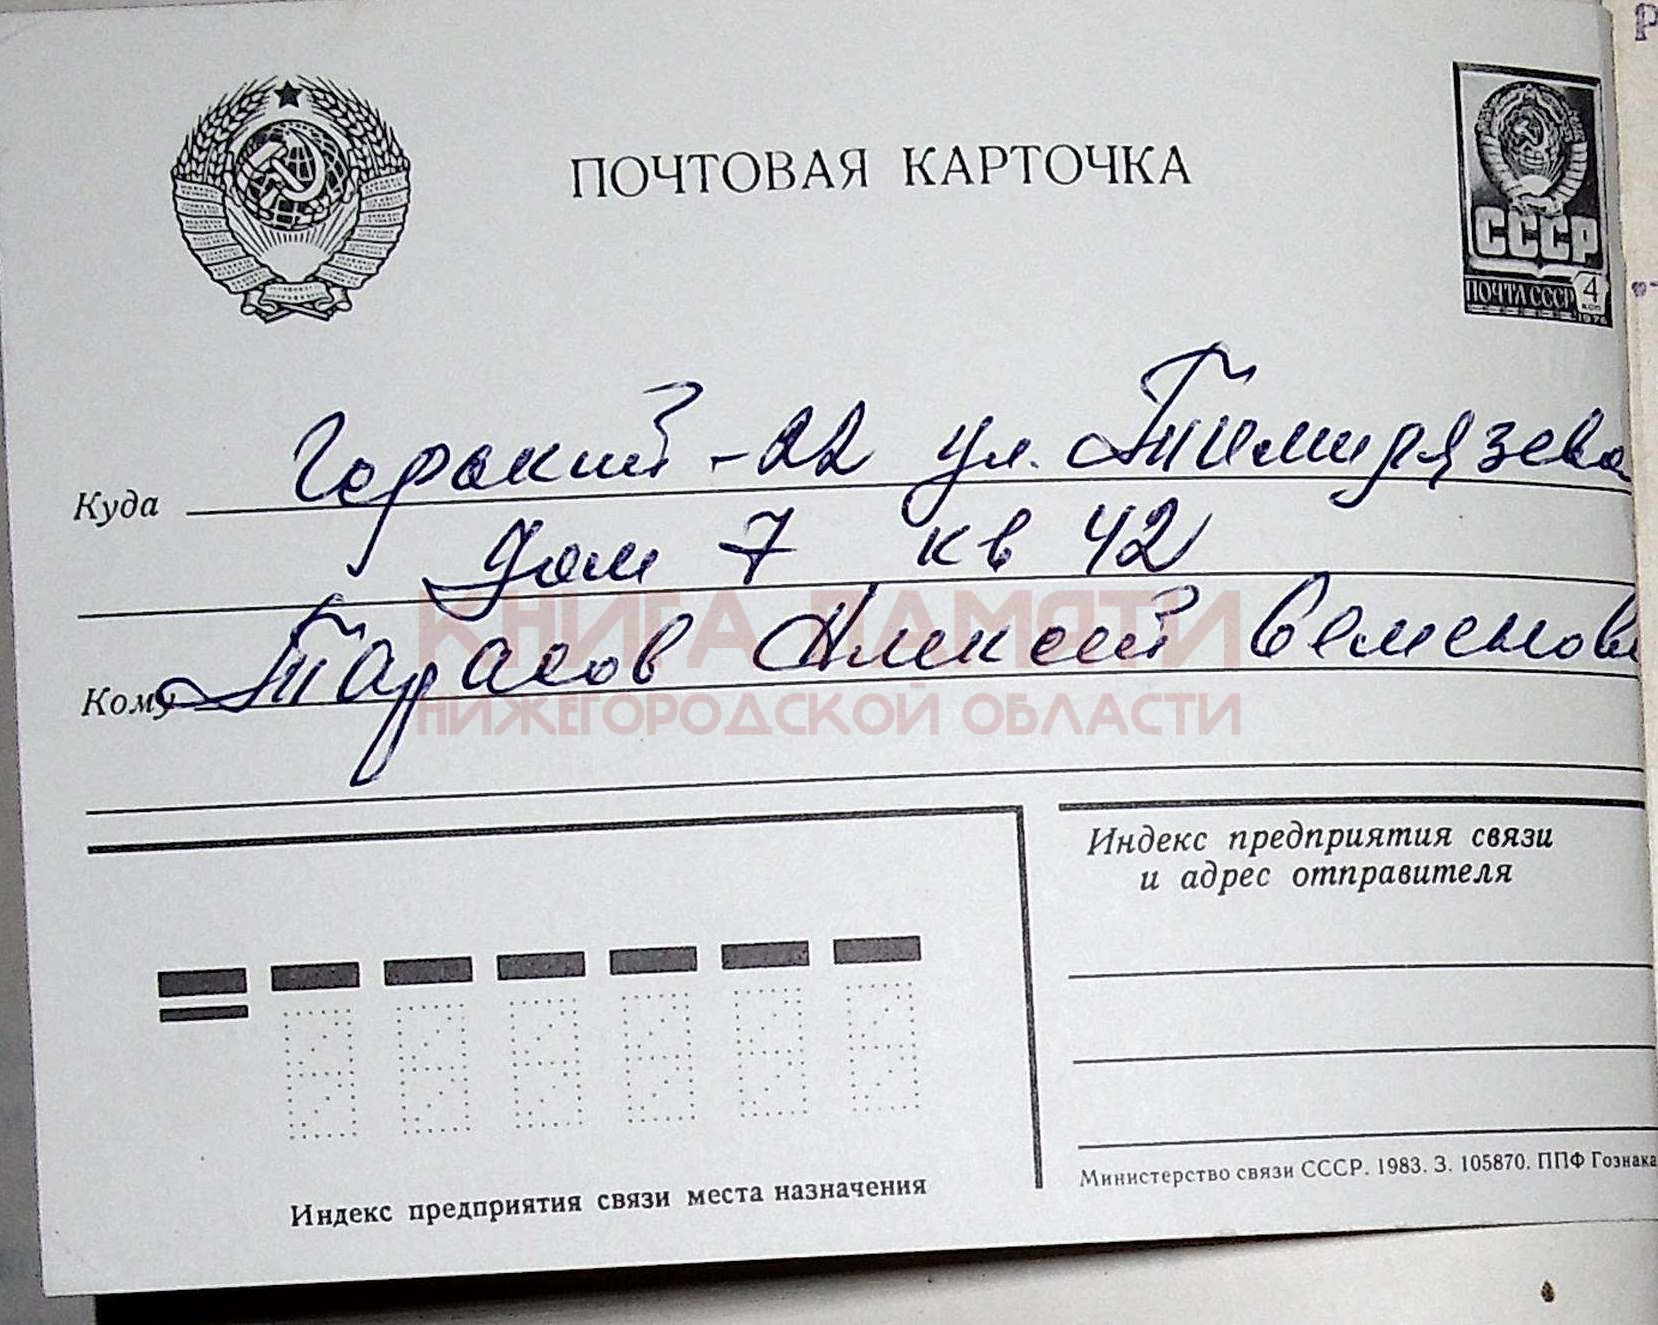 ПОЧТОВАЯ КАРТОЧКА
СССР
ПОЧТА СССР 4 коп
1976
Куда Горький-22 ул. Тимирязева
дом 7 кв 42
КНИГА ПАМЯТИ
Кому Тарасов Алексей Семенови
НИЖЕГОРОДСКОЙ ОБЛАСТИ
Индекс предприятия связи
и адрес отправителя
Министерство связи СССР. 1983. З. 105870. ППФ Гознака
Индекс предприятия связи места назначения